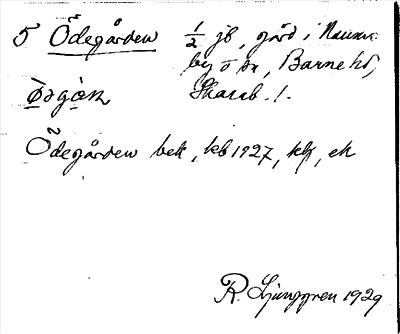 5 Ödegården 1/2 jb, gård i Naum
by o sn, Barne hd,
Skarab. l.
Ödegården bek, kb 1927, klk, ek
R. Ljunggren 1929